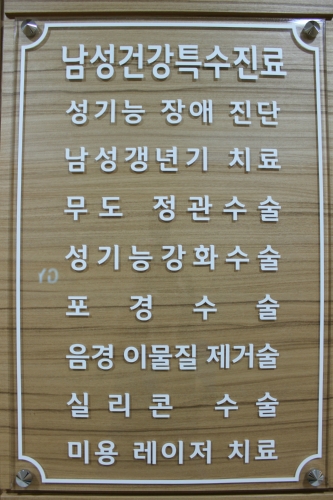 남성건강특수진료
성기능 장애 진단
남성갱년기 치료
무도 정관수술
성기능강화수술
포경수술
음경 이물질 제거술
실리콘 수술
미용 레이저 치료